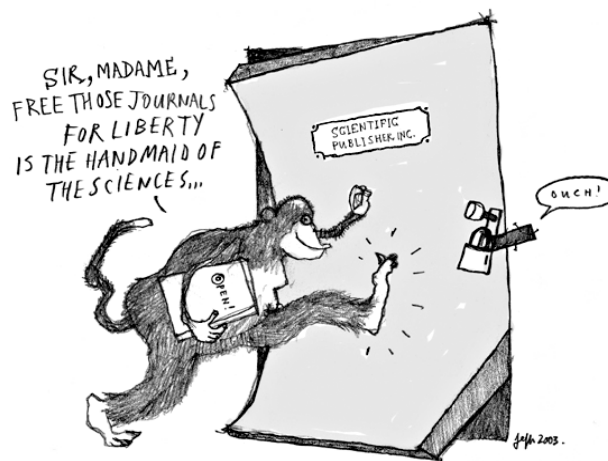 SIR, MADAME,
FREE THOSE JOURNALS
FOR LIBERTY
IS THE HANDMAID OF
THE SCIENCES...
SCIENTIFIC
PUBLISHER INC.
OUCH!
OPEN!
2003.